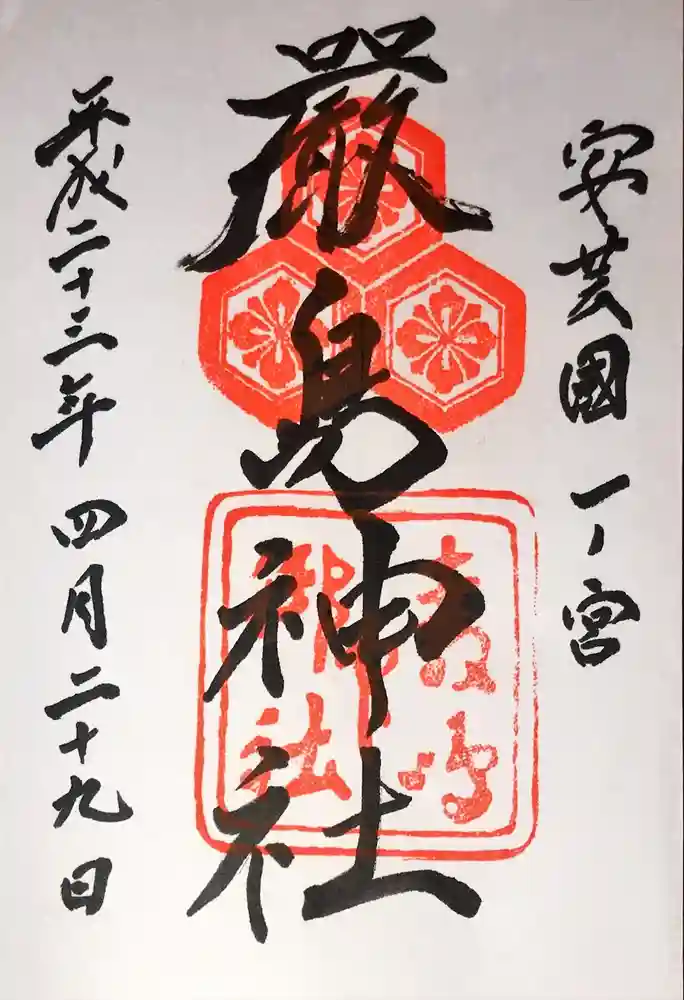 安芸國一ノ宮
厳島神社
平成二十三年四月二十九日